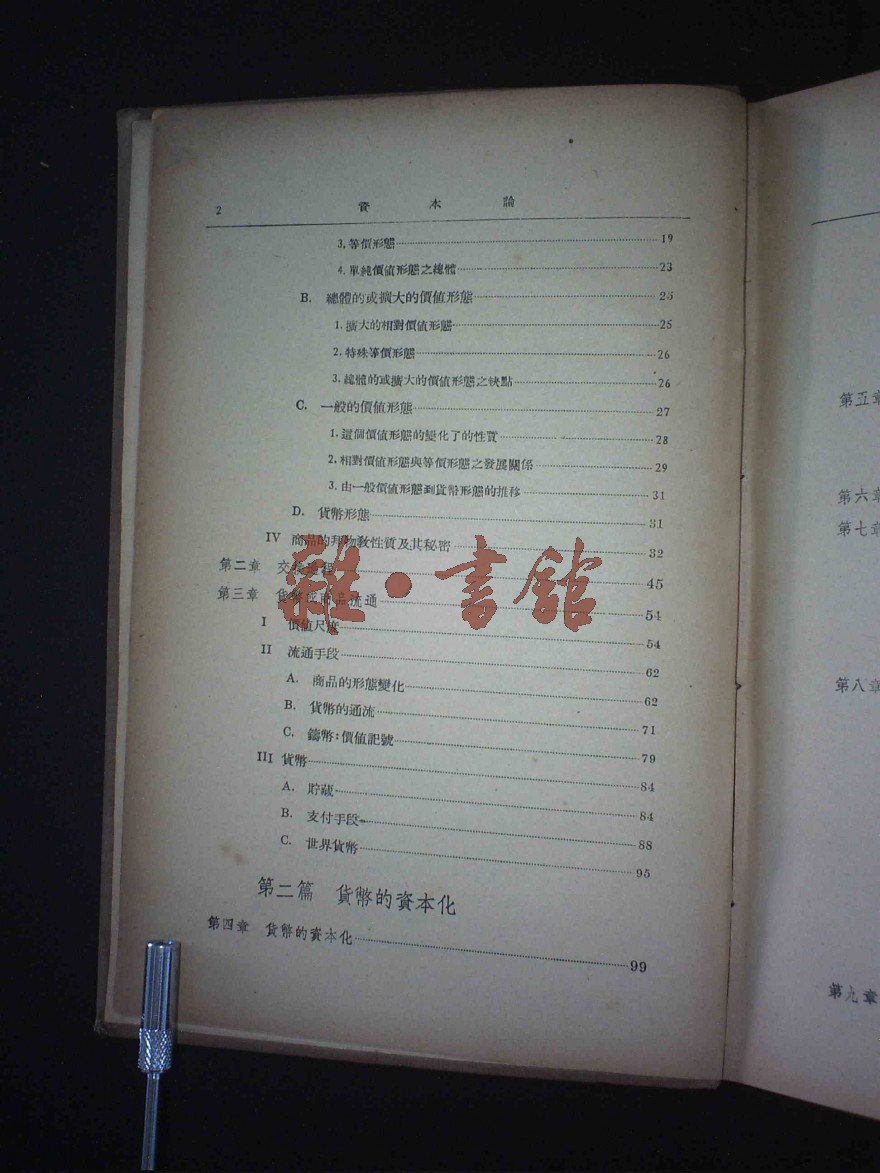 2 資本論
3. 等價形態 19
4. 單純價値形態之總體 23
B. 總體的或擴大的價値形態 25
1. 擴大的相對價値形態 25
2. 特殊等價形態 26
3. 總體的或擴大的價値形態之缺點 26
C. 一般的價値形態 27
1. 這個價値形態的變化了的性質 28
2. 相對價値形態與等價形態之發展關係 29
3. 由一般價値形態到貨幣形態的推移 31
D. 貨幣形態 31
IV 商品的拜物敎性質及其秘密 32
第二章 交換過程 45
第三章 貨幣或商品流通 54
I 價値尺度 54
II 流通手段 62
A. 商品的形態變化 62
B. 貨幣的通流 71
C. 鑄幣:價値記號 79
III 貨幣 84
A. 貯藏 84
B. 支付手段 88
C. 世界貨幣 95
第二篇 貨幣的資本化
第四章 貨幣的資本化 99
雜·書館
第五章
第六章
第七章
第八章
第九章